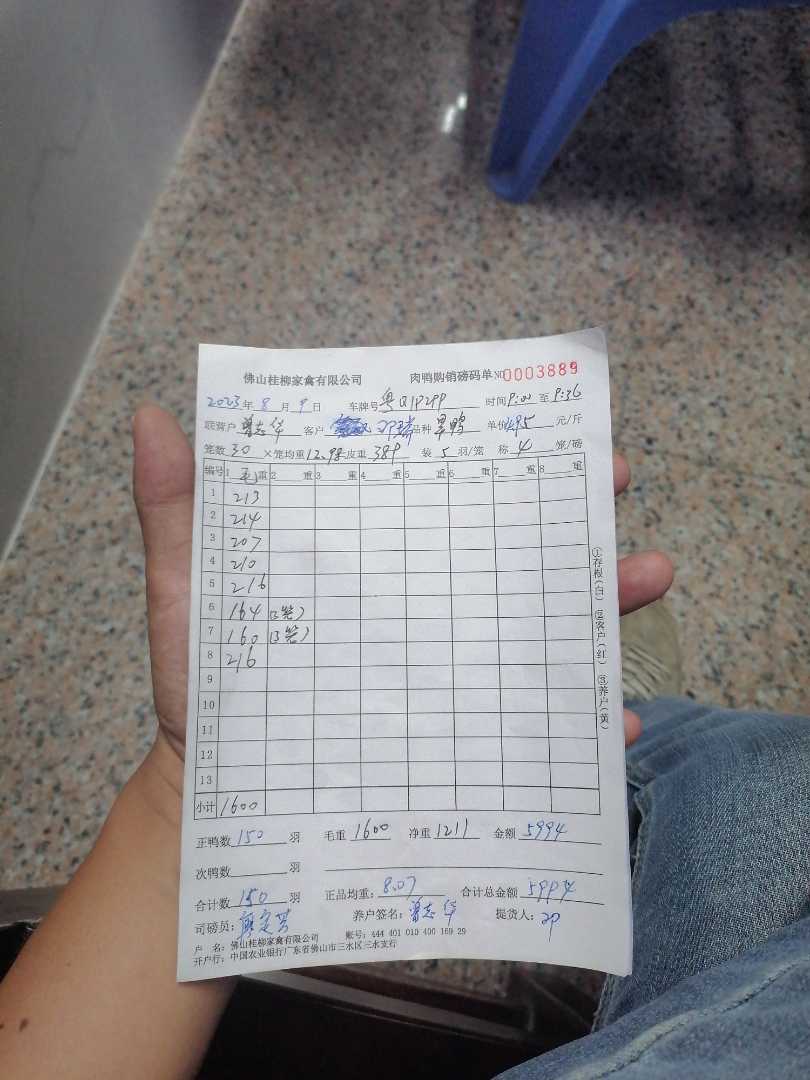 佛山桂柳家禽有限公司 肉鸭购销磅码单 NO 0003889
2023年 8 月 9 日 车牌号 时间 9:00 至 9:36
联营户 曾志华 客户 品种 旱鸭 单价 4.95 元/斤
笼数 30 ×笼均重 12.98 皮重 389 装 5 羽/笼 称 4 笼/磅
编号 1 毛 重 2 重 3 重 4 重 5 重 6 重 7 重 8 重
1 213
2 214
3 207
4 210
5 216
6 164 (3笼)
7 160 (3笼)
8 216
9
10
11
12
13
小计 1600
正鸭数 150 羽 毛重 1600 净重 1211 金额 5994
次鸭数 羽
合计数 150 羽 正品均重: 8.07 合计总金额 5994
司磅员: 养户签名: 曾志华 提货人:
户 名: 佛山桂柳家禽有限公司 账号: 444 401 010 400 169 29
开户行: 中国农业银行广东省佛山市三水区三水支行
①存根(白) ②客户(红) ③养户(黄)